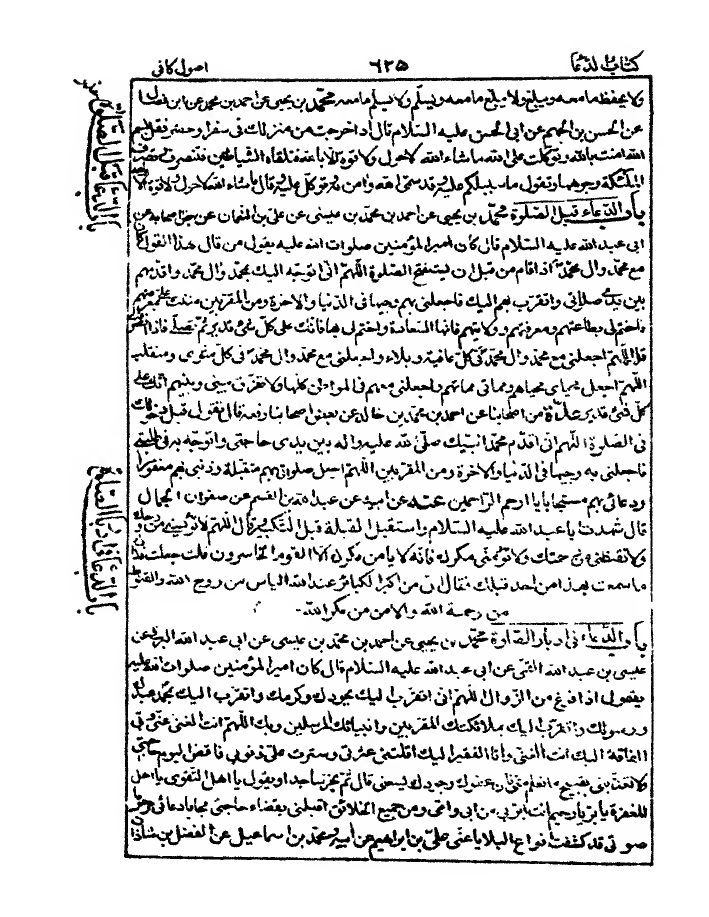 كتاب الدعا ٦٢٥ اصول كافى
ولا يحفظ ما معه ويبلغ ولا يبلغ ما معه ويسلم ولا يسلم ما معه محمد بن يحيى عن احمد بن محمد عن ابن فضال
عن الحسن بن الجهم عن ابى الحسن عليه السلام قال اذا خرجت من منزلك فى سفر او حضر فقل بسم
الله امنت بالله وتوكلت على الله ما شاء الله لا حول ولا قوة الا بالله فتلقاه الشياطين فتنصرف وتضرب
الملئكة وجوهها وتقول ما سبيلكم عليه وقد سمى الله وامن به وتوكل عليه وقال ما شاء الله لا حول ولا قوة الا
باب الدعاء قبل الصلوة محمد بن يحيى عن احمد بن محمد بن عيسى عن على بن النعمان عن بعض اصحابه عن
ابى عبد الله عليه السلام قال كان امير المؤمنين صلوات الله عليه يقول من قال هذا القول كان
مع محمد وال محمد اذا قام من قبل ان يستفتح الصلوة اللهم انى اتوجه اليك بمحمد وال محمد واقدمهم
بين يدى صلاتى واتقرب بهم اليك فاجعلنى بهم وجيها فى الدنيا والاخرة ومن المقربين مننت على بمعرفتهم
فاختم لى بطاعتهم ومعرفتهم وولايتهم فانها السعادة واختم لى بها فانك على كل شئ قدير ثم تصلى فاذا انصرفت
قلت اللهم اجعلنى مع محمد وال محمد فى كل عافية وبلاء واجعلنى مع محمد وال محمد فى كل مثوى ومنقلب
اللهم اجعل محياى محياهم ومماتى مماتهم واجعلنى معهم فى المواطن كلها ولا تفرق بينى وبينهم انك على
كل شئ قدير عدة من اصحابنا عن احمد بن محمد بن خالد عن بعض اصحابنا رفعه قال تقول قبل دخولك
فى الصلوة اللهم انى اقدم محمدا نبيك صلى الله عليه واله بين يدى حاجتى واتوجه به فى طلبتى
فاجعلنى به وجيها فى الدنيا والاخرة ومن المقربين اللهم اجعل صلواتى بهم متقبلة وذنبى بهم مغفورا
ودعائى بهم مستجابا يا ارحم الراحمين عنه عن ابيه عن عبد الله بن القسم عن صفوان الجمال
قال شهدت ابا عبد الله عليه السلام واستقبل القبلة قبل التكبير وقال اللهم لا تؤيسنى من روحك
ولا تقنطنى من رحمتك ولا تؤمنى مكرك فانه لا يامن مكرك الا القوم الخاسرون قلت جعلت فداك
ما سمعت بهذا من احد قبلك فقال ان من اكبر الكبائر عند الله الياس من روح الله والقنوط
من رحمة الله والامن من مكر الله
باب الدعاء فى ادبار الصلوة محمد بن يحيى عن احمد بن محمد بن عيسى عن ابى عبد الله البرقى عن
عيسى بن عبد الله القمى عن ابى عبد الله عليه السلام قال كان امير المؤمنين صلوات الله عليه
يقول اذا فرغ من الزوال اللهم انى اتقرب اليك بجودك وكرمك واتقرب اليك بمحمد عبدك
ورسولك واتقرب اليك بملائكتك المقربين وانبيائك المرسلين وبك اللهم انت الغنى عنى وبى
الفاقة اليك انت الغنى وانا الفقير اليك اقلتنى عثرتى وسترت على ذنوبى فاقض اليوم حاجتى
ولا تعذبنى بقبيح ما تعلم منى بل عفوك وجودك يسعنى قال ثم يخر ساجدا ويقول يا اهل التقوى يا اهل
المغفرة يا بر يا رحيم انت ابر بى من ابى وامى ومن جميع الخلائق اقبلنى بقضاء حاجتى مجابا دعائى مرحوما
صوتى قد كشفت انواع البلايا عنى على بن ابراهيم عن ابيه ومحمد بن اسماعيل عن الفضل بن شاذان
باب الدعا قبل الصلوة
باب الدعا فى ادبار الصلوة